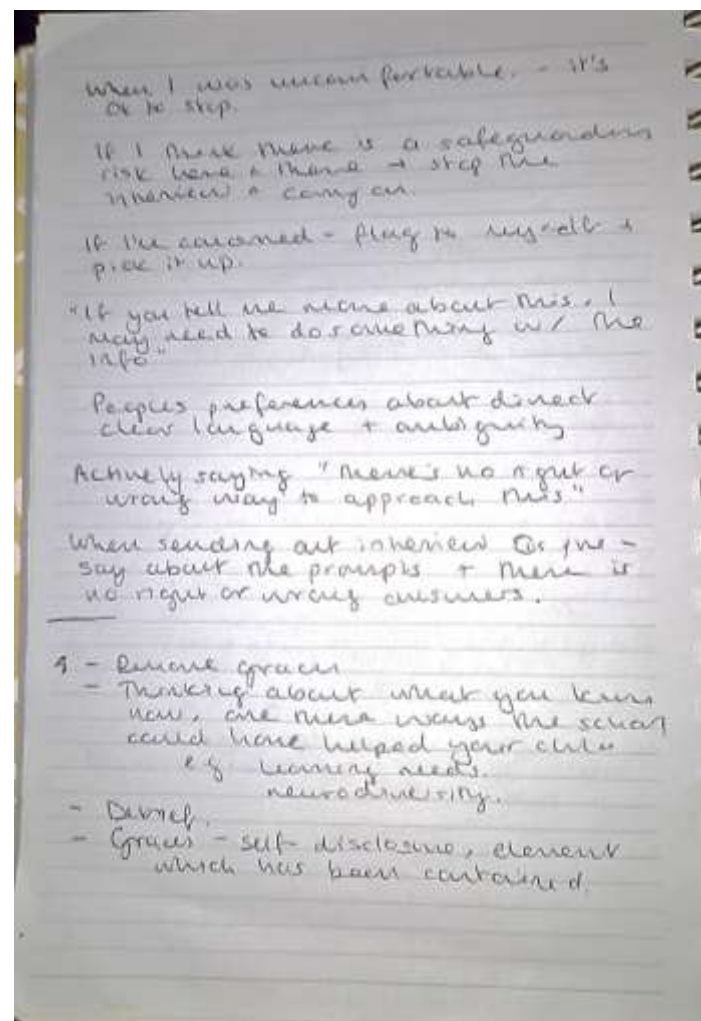 When I was uncomfortable. - it's
ok to stop.
If I think there is a safeguarding
risk here & there → stop the
interview & carry on.
If I'm concerned - flag to myself &
pick it up.
"If you tell me more about this, I
may need to do something w/ the
info"
Peoples preferences about direct
clear language + ambiguity
Actively saying "there's no right or
wrong way to approach this"
When sending out interview Qs pre-
say about the prompts + there is
no right or wrong answers.
- Remove graces
- Thinking about what you know
now, are there ways the school
could have helped your child
eg learning needs.
neurodiversity.
- Debrief.
- Graces - self-disclosure, element
which has been contained.